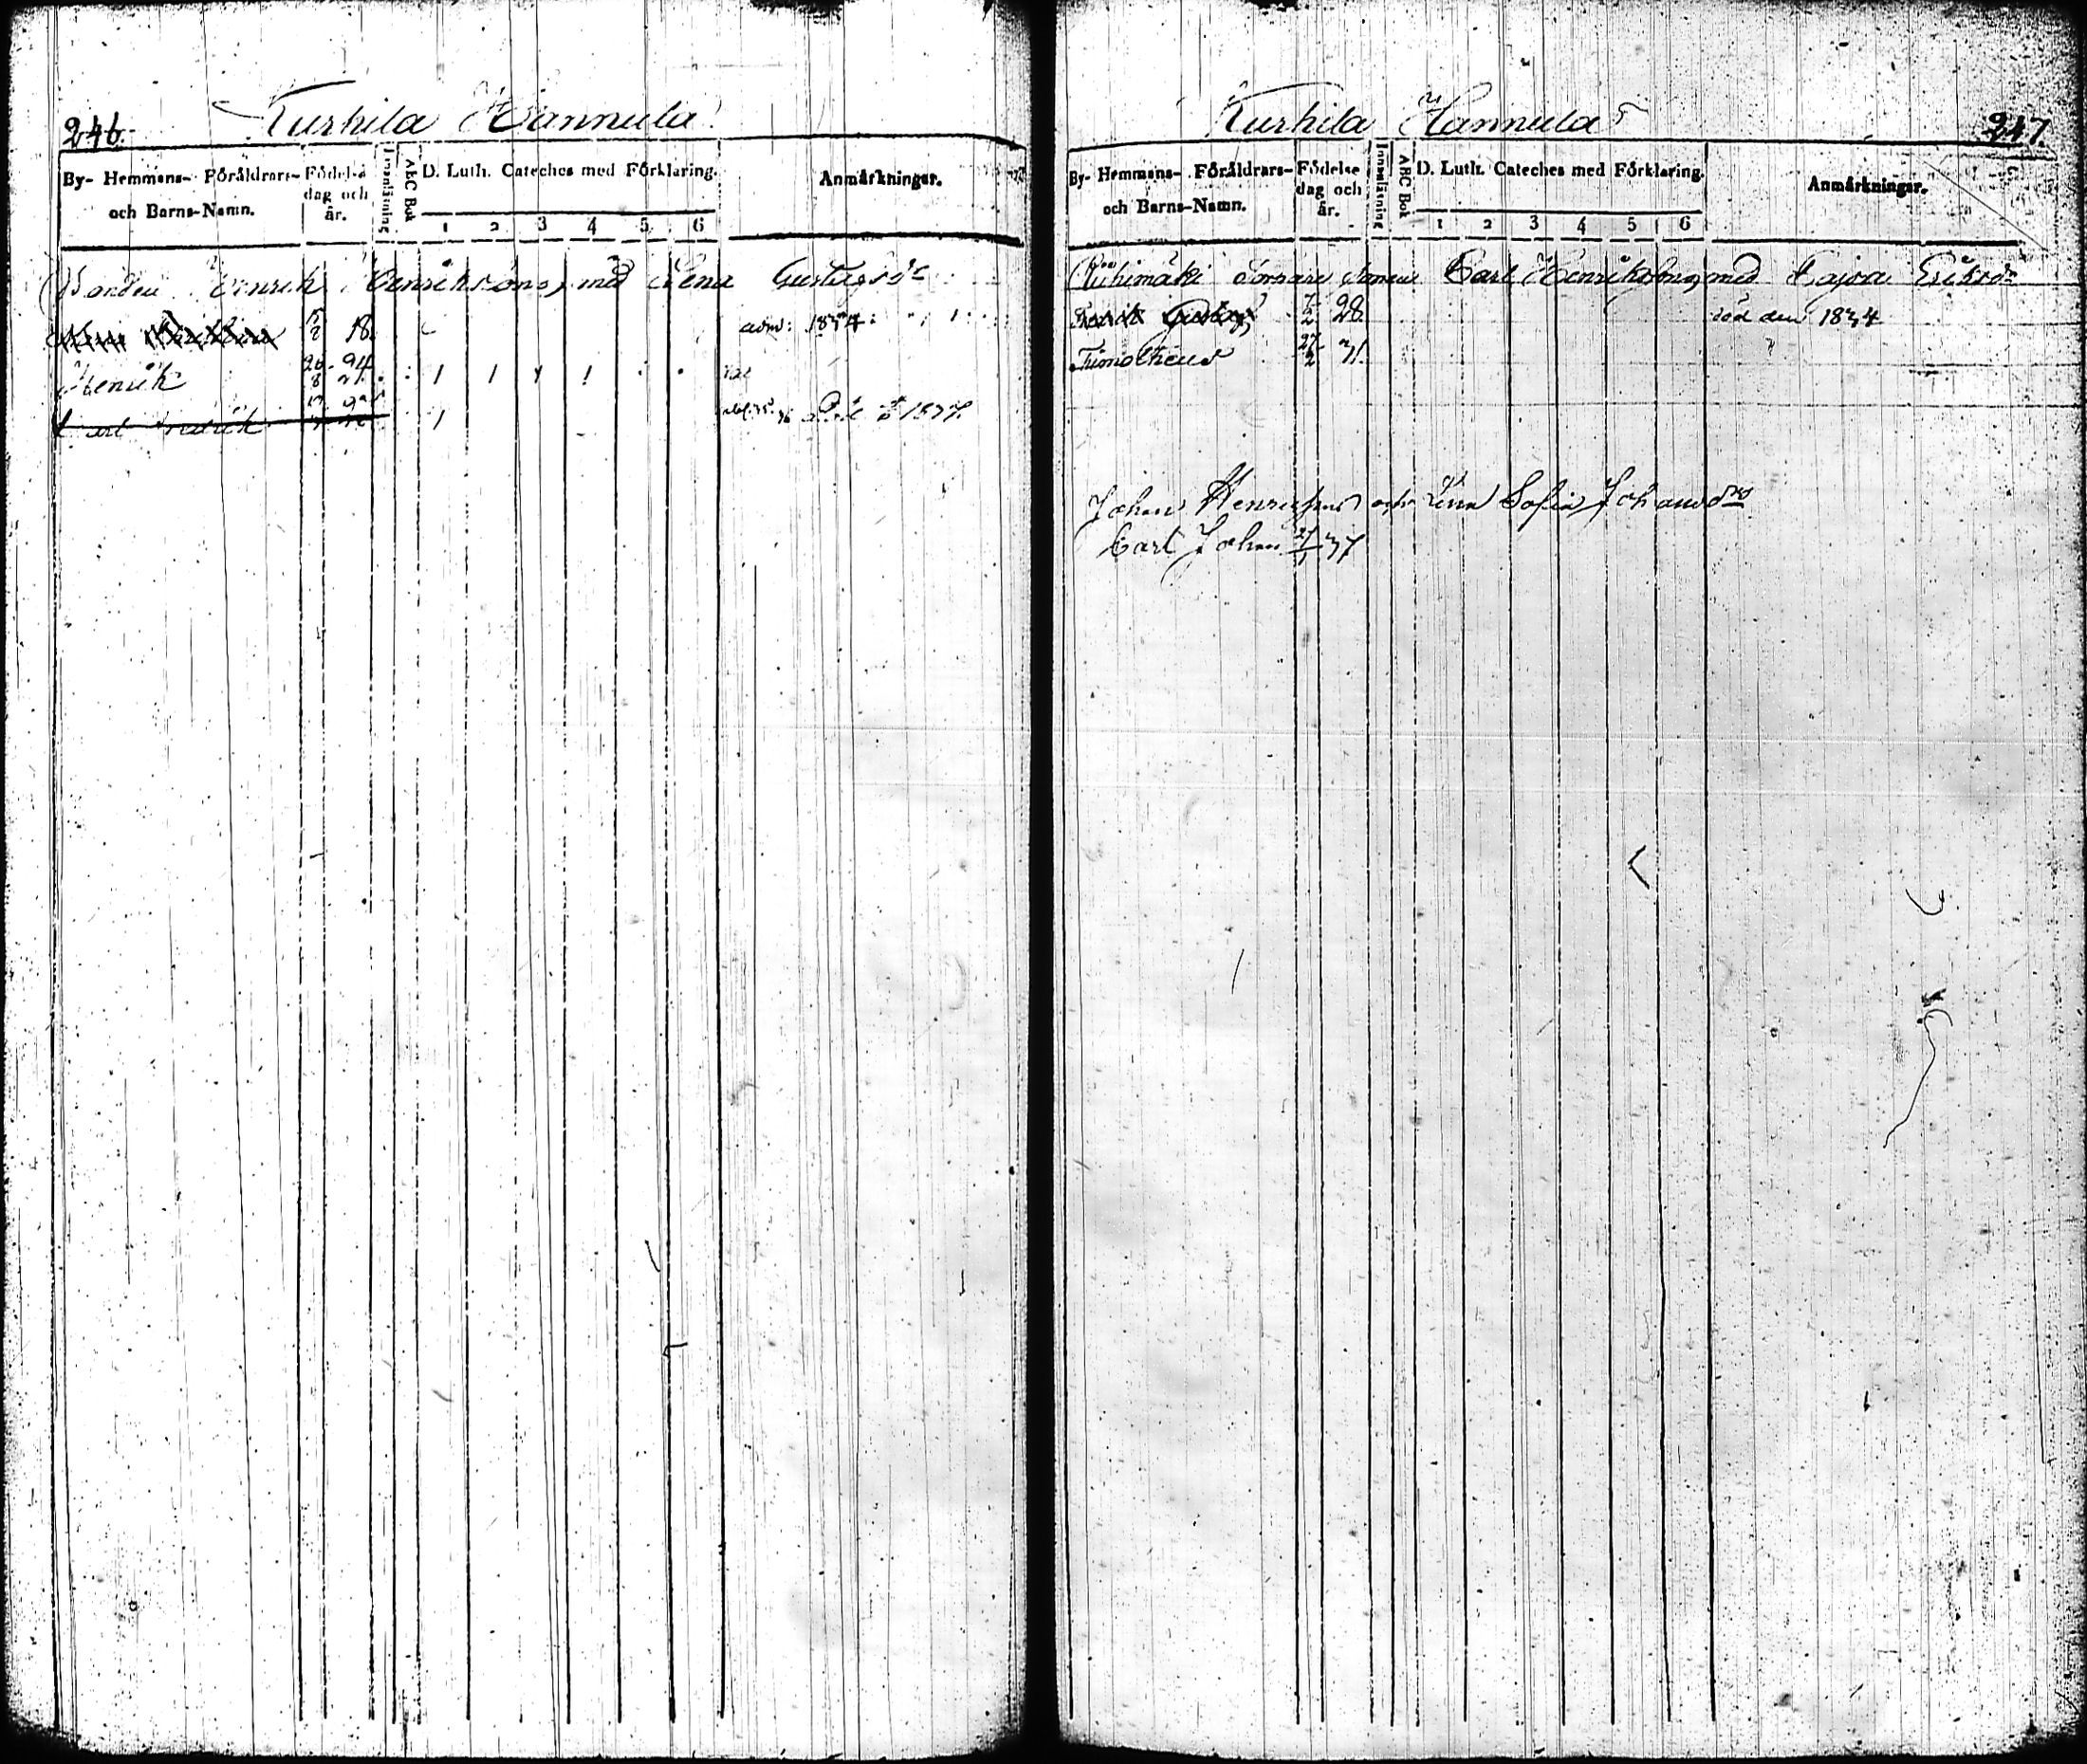 246.
Kurhila Hannula
By- Hemmans- Föräldrars- och Barns-Namn.
Födelse dag och år.
Innanläsning
ABC Bok
D. Luth. Cateches med Förklaring.
1 2 3 4 5 6
Anmärkningar.
Bonden Henrik Henriksons med Lena Gustafsd:r
18. adm: 1834
Henrik 1 1 1 1
Carl Fredrik 1 1837
247.
Kurhila Hannula
By- Hemmans- Föräldrars- och Barns-Namn.
Födelse dag och år.
Innanläsning
ABC Bok
D. Luth. Cateches med Förklaring.
1 2 3 4 5 6
Anmärkningar.
Riihimäki Carl Henriksons med Cajsa Eriksdr
Gustaf 7/2 28 död den 1834
Timotheus 27/2 31.
Johan Henricsons och Lena Sofia Johansdr
Carl Johan 27/1 37